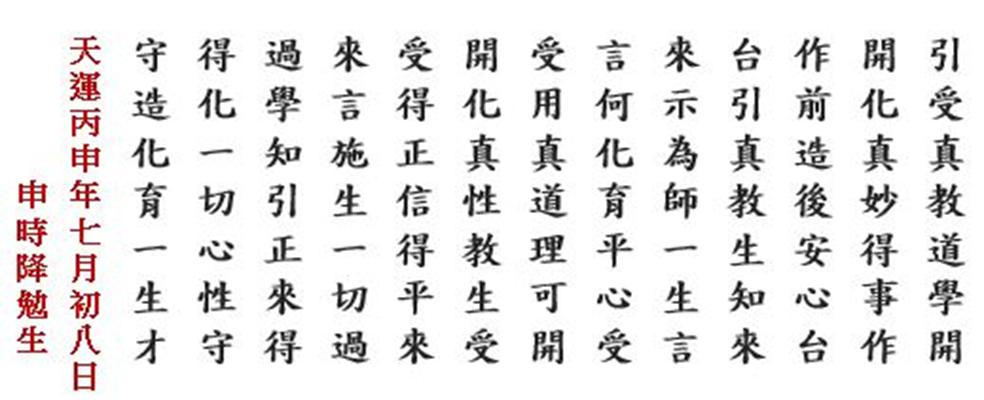 引受真教道學開
開化真妙得事作
作前造後安心台
台引真教生知來
來示為師一生言
言何化育平心受
受用真道理可開
開化真性教生受
受得正信得平來
來言施生一切過
過學知引正來得
得化一切心性守
守造化育一生才
天運丙申年七月初八日
申時降勉生